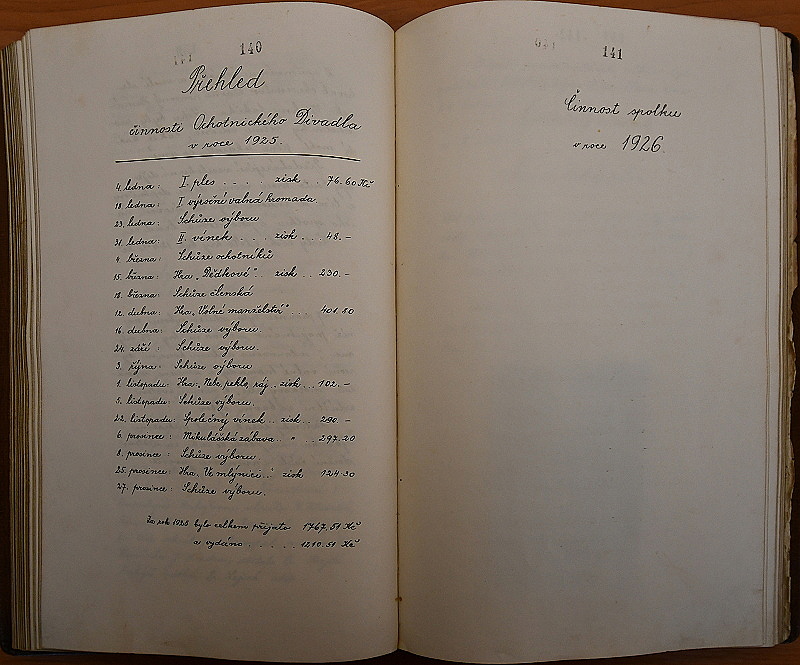 140
Přehled
činnosti Ochotnického Divadla
v roce 1925.
4. ledna: I ples . . . . zisk . . 76.60 Kč
18. ledna: I výroční valná hromada
23. ledna: Schůze výboru
31. ledna: II. věnek . . . zisk . . . 48.–
4. března: Schůze ochotníků
15. března: Hra „Dědkové“ . . zisk . . 230.–
18. března: Schůze členská
12. dubna: Hra „Volné manželství“ . . . 401.80
16. dubna: Schůze výboru.
24. září: Schůze výboru.
3. října: Schůze výboru
1. listopadu: Hra: „Nebe, peklo, ráj . . zisk . . 102.–
5. listopadu: Schůze výboru.
22. listopadu: Společný věnek . . zisk . . 290.–
6. prosince: Mikulášská zábava . . " . . 297.20
8. prosince: Schůze výboru
25. prosince: Hra „Ve mlýnici . .“ zisk 124.30
27. prosince: Schůze výboru.
Za rok 1925 bylo celkem přijato 1767.51 Kč
a vydáno . . . . . . 1210.51 Kč
141
Činnost spolku
v roce 1926.